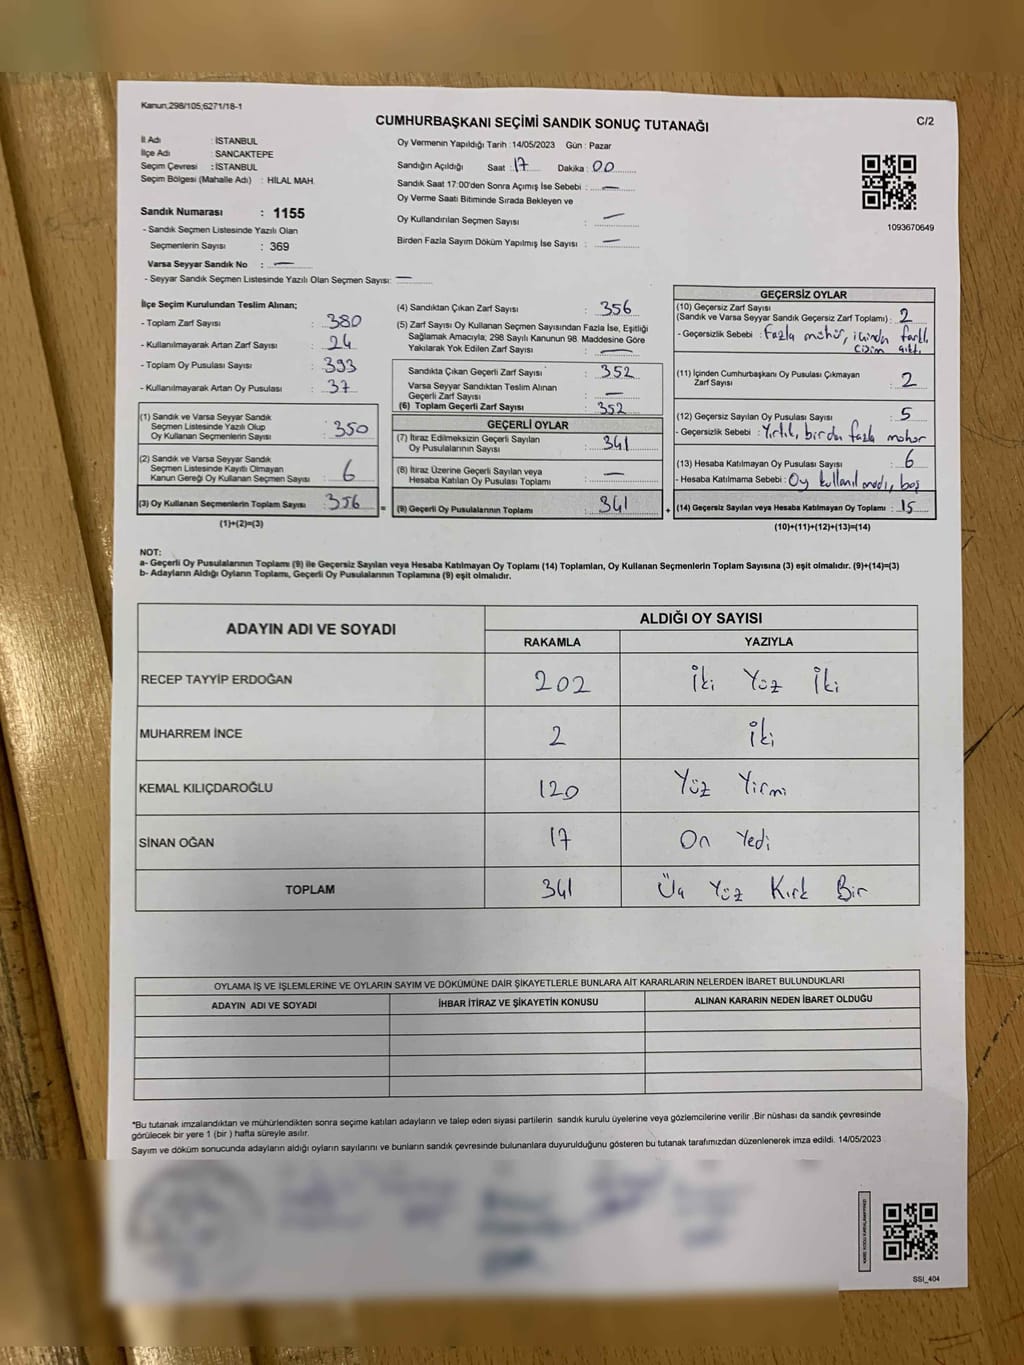 Kanun;298/105;6271/18-1
CUMHURBAŞKANI SEÇİMİ SANDIK SONUÇ TUTANAĞI
C/2
İl Adı : İSTANBUL
İlçe Adı : SANCAKTEPE
Seçim Çevresi : İSTANBUL
Seçim Bölgesi (Mahalle Adı) : HİLAL MAH.
Sandık Numarası : 1155
- Sandık Seçmen Listesinde Yazılı Olan
Seçmenlerin Sayısı : 369
Varsa Seyyar Sandık No : —
- Seyyar Sandık Seçmen Listesinde Yazılı Olan Seçmen Sayısı: —
Oy Vermenin Yapıldığı Tarih : 14/05/2023 Gün : Pazar
Sandığın Açıldığı Saat : 17 Dakika : 00
Sandık Saat 17:00'den Sonra Açımış İse Sebebi : —
Oy Verme Saati Bitiminde Sırada Bekleyen ve
Oy Kullandırılan Seçmen Sayısı : —
Birden Fazla Sayım Döküm Yapılmış İse Sayısı : —
1093670649
İlçe Seçim Kurulundan Teslim Alınan;
- Toplam Zarf Sayısı : 380
- Kullanılmayarak Artan Zarf Sayısı : 24
- Toplam Oy Pusulası Sayısı : 393
- Kullanılmayarak Artan Oy Pusulası : 37
(1) Sandık ve Varsa Seyyar Sandık
Seçmen Listesinde Yazılı Olup
Oy Kullanan Seçmenlerin Sayısı : 350
(2) Sandık ve Varsa Seyyar Sandık
Seçmen Listesinde Kayıtlı Olmayan
Kanun Gereği Oy Kullanan Seçmen Sayısı : 6
(3) Oy Kullanan Seçmenlerin Toplam Sayısı : 356 =
(1)+(2)=(3)
(4) Sandıktan Çıkan Zarf Sayısı : 356
(5) Zarf Sayısı Oy Kullanan Seçmen Sayısından Fazla İse, Eşitliği
Sağlamak Amacıyla; 298 Sayılı Kanunun 98. Maddesine Göre
Yakılarak Yok Edilen Zarf Sayısı : —
Sandıkta Çıkan Geçerli Zarf Sayısı : 352
Varsa Seyyar Sandıktan Teslim Alınan
Geçerli Zarf Sayısı : —
(6) Toplam Geçerli Zarf Sayısı : 352
GEÇERLİ OYLAR
(7) İtiraz Edilmeksizin Geçerli Sayılan
Oy Pusulalarının Sayısı : 341
(8) İtiraz Üzerine Geçerli Sayılan veya
Hesaba Katılan Oy Pusulası Toplamı : —
(9) Geçerli Oy Pusulalarının Toplamı : 341 +
GEÇERSİZ OYLAR
(10) Geçersiz Zarf Sayısı
(Sandık ve Varsa Seyyar Sandık Geçersiz Zarf Toplamı) : 2
- Geçersizlik Sebebi : Fazla mühür, içinden farklı
cisim çıktı.
(11) İçinden Cumhurbaşkanı Oy Pusulası Çıkmayan
Zarf Sayısı : 2
(12) Geçersiz Sayılan Oy Pusulası Sayısı : 5
- Geçersizlik Sebebi : Yırtık, birden fazla mühür
(13) Hesaba Katılmayan Oy Pusulası Sayısı : 6
- Hesaba Katılmama Sebebi : Oy kullanılmadı, boş
(14) Geçersiz Sayılan veya Hesaba Katılmayan Oy Toplamı : 15
(10)+(11)+(12)+(13)=(14)
NOT:
a- Geçerli Oy Pusulalarının Toplamı (9) ile Geçersiz Sayılan veya Hesaba Katılmayan Oy Toplamı (14) Toplamları, Oy Kullanan Seçmenlerin Toplam Sayısına (3) eşit olmalıdır. (9)+(14)=(3)
b- Adayların Aldığı Oyların Toplamı, Geçerli Oy Pusulalarının Toplamına (9) eşit olmalıdır.
ADAYIN ADI VE SOYADI
ALDIĞI OY SAYISI
RAKAMLA YAZIYLA
RECEP TAYYİP ERDOĞAN 202 İki Yüz İki
MUHARREM İNCE 2 İki
KEMAL KILIÇDAROĞLU 120 Yüz Yirmi
SİNAN OĞAN 17 On Yedi
TOPLAM 341 Üç Yüz Kırk Bir
OYLAMA İŞ VE İŞLEMLERİNE VE OYLARIN SAYIM VE DÖKÜMÜNE DAİR ŞİKAYETLERLE BUNLARA AİT KARARLARIN NELERDEN İBARET BULUNDUKLARI
ADAYIN ADI VE SOYADI İHBAR İTİRAZ VE ŞİKAYETİN KONUSU ALINAN KARARIN NEDEN İBARET OLDUĞU
*Bu tutanak imzalandıktan ve mühürlendikten sonra seçime katılan adayların ve talep eden siyasi partilerin sandık kurulu üyelerine veya gözlemcilerine verilir .Bir nüshası da sandık çevresinde
görülecek bir yere 1 (bir ) hafta süreyle asılır.
Sayım ve döküm sonucunda adayların aldığı oyların sayılarını ve bunların sandık çevresinde bulunanlara duyurulduğunu gösteren bu tutanak tarafımızdan düzenlenerek imza edildi. 14/05/2023
SSİ_404